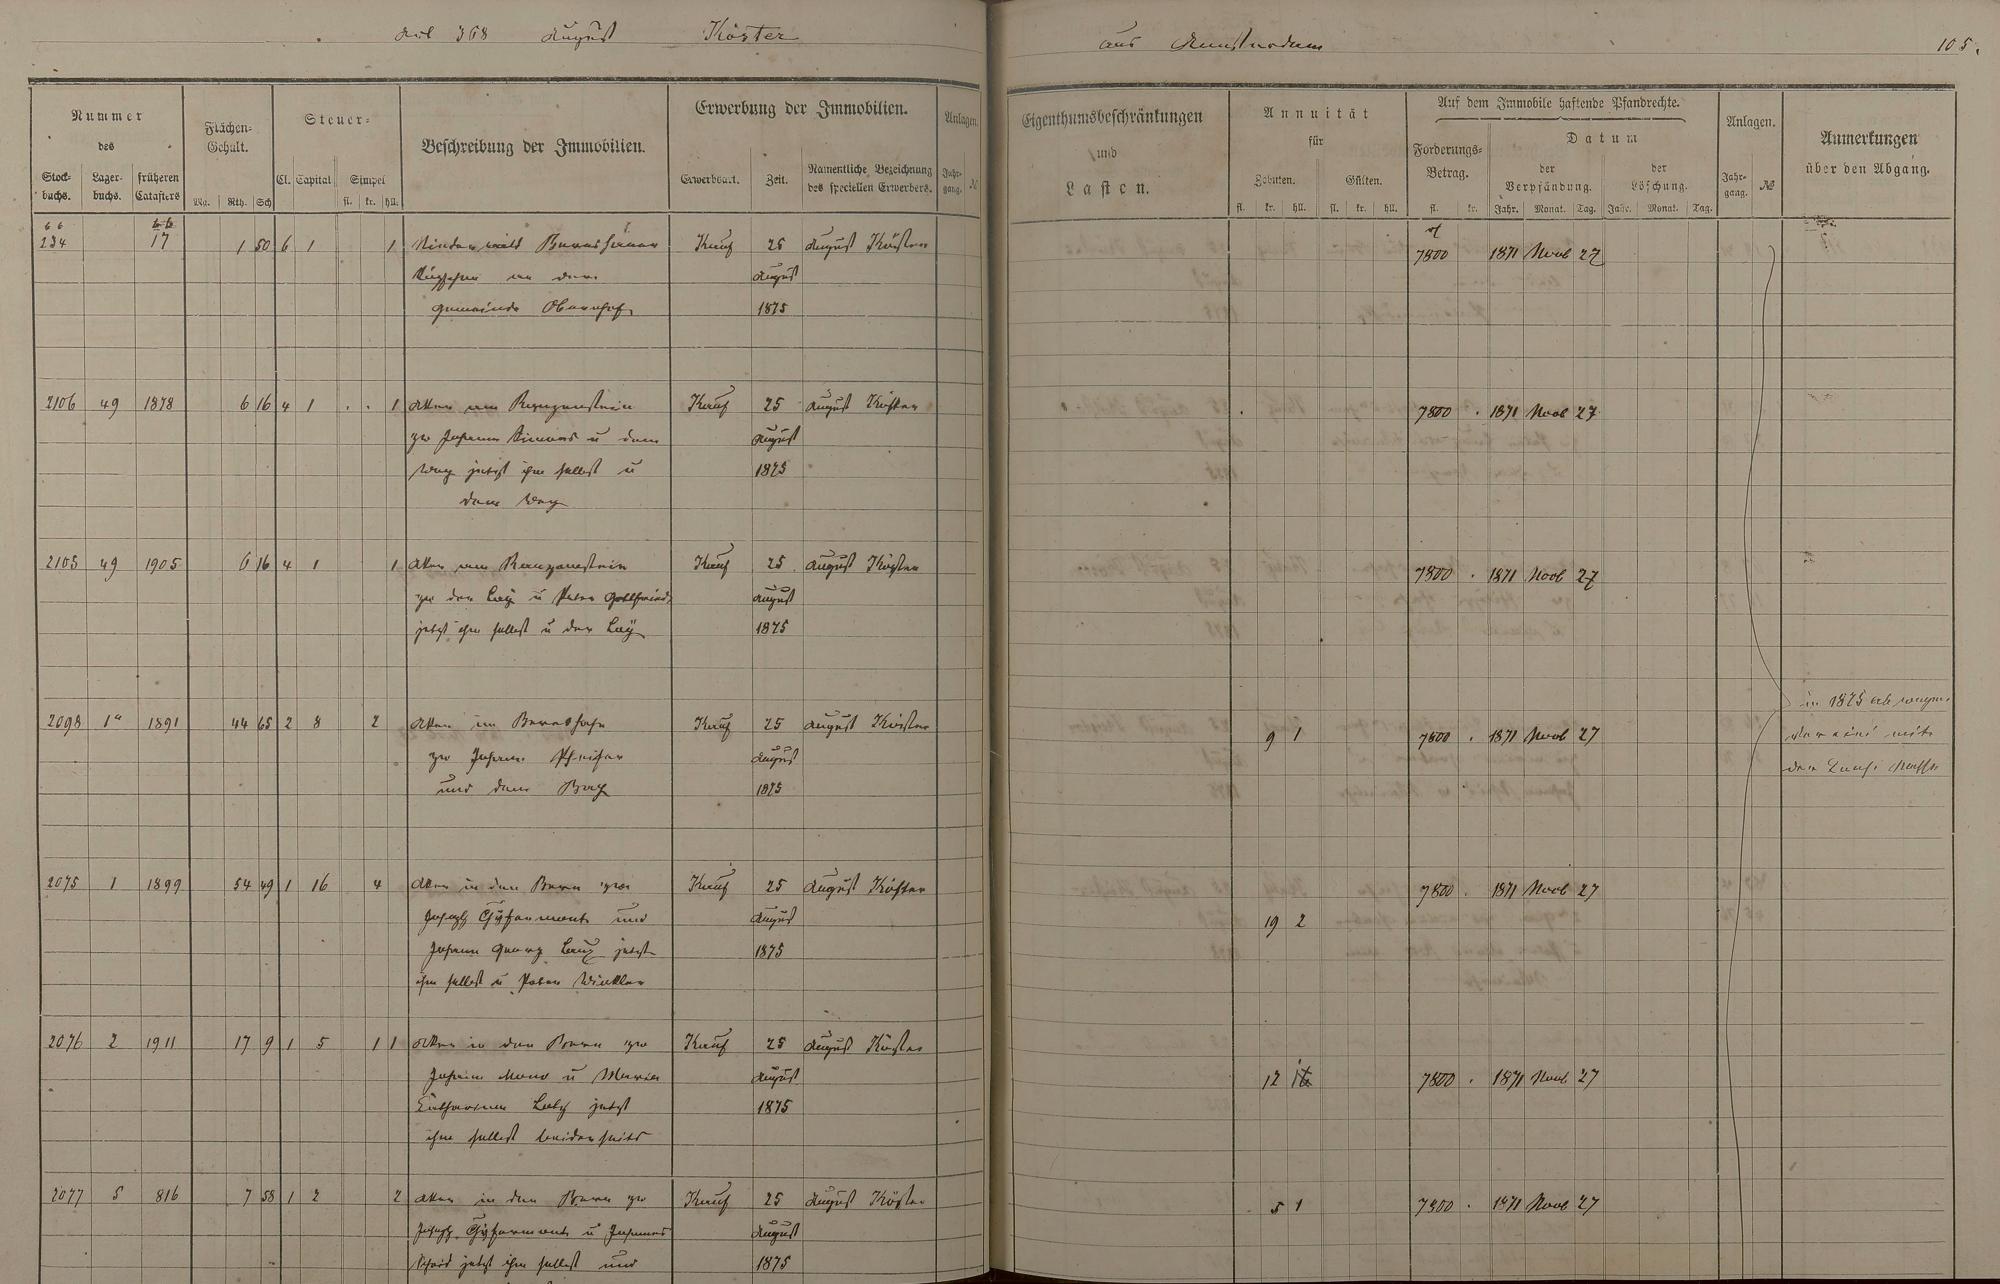 Art 368 August Köster aus Amsterdam 105.
Nummer des
Stock-buchs. Lager-buchs. früheren Catasters
Flächen-Gehalt.
Mg. Rth. Sch
Steuer-
Cl. Capital Simpel
fl. kr. hll.
Beschreibung der Immobilien.
Erwerbung der Immobilien.
Erwerbsart. Zeit. Namentliche Bezeichnung des speciellen Erwerbers.
Anlagen.
Jahr-gang. №
Eigenthumsbeschränkungen
und
Lasten.
Annuität
für
Zehnten. Gülten.
fl. kr. hll. fl. kr. hll.
Auf dem Immobile haftende Pfandrechte.
Forderungs-Betrag.
fl. kr.
Datum
der Verpfändung. der Löschung.
Jahr. Monat. Tag. Jahr. Monat. Tag.
Anlagen.
Jahr-gang. №
Anmerkungen
über den Abgang.
66 66
234 17 1 50 6 1 1 Kauf 25 August Köster 7800 1871 Novb 27
an der August
Gemeinde Obernhof 1875
2106 49 1878 6 16 4 1 . . 1 Acker am Kauf 25 August Köster 7800 . 1871 Novb 27
zw Johann u dem August
Weg jetzt ihm selbst u 1875
dem Weg
2105 49 1905 6 16 4 1 1 Acker am Kauf 25 August Köster 7800 . 1871 Novb 27
zw der Lay u Peter Gottfried August
jetzt ihm selbst u der Lay 1875
2098 1a 1891 44 65 2 8 2 Acker im Kauf 25 August Köster 9 1 7800 . 1871 Novb 27 in 1875
zw Johann Pfeifer August mit
und dem Bach 1875 der
2075 1 1899 54 49 1 16 4 Acker in den zw Kauf 25 August Köster 19 2 7800 . 1871 Novb 27
Joseph und August
Johann Georg jetzt 1875
ihm selbst u Peter Winkler
2076 2 1911 17 9 1 5 1 1 Acker in den zw Kauf 25 August Köster 12 7800 . 1871 Novb 27
Johann u Maria August
Catharina jetzt 1875
ihm selbst beiderseits
2077 5 816 7 58 1 2 2 Acker in den zw Kauf 25 August Köster 5 1 7800 . 1871 Novb 27
Joseph u Johannes August
jetzt ihm selbst und 1875